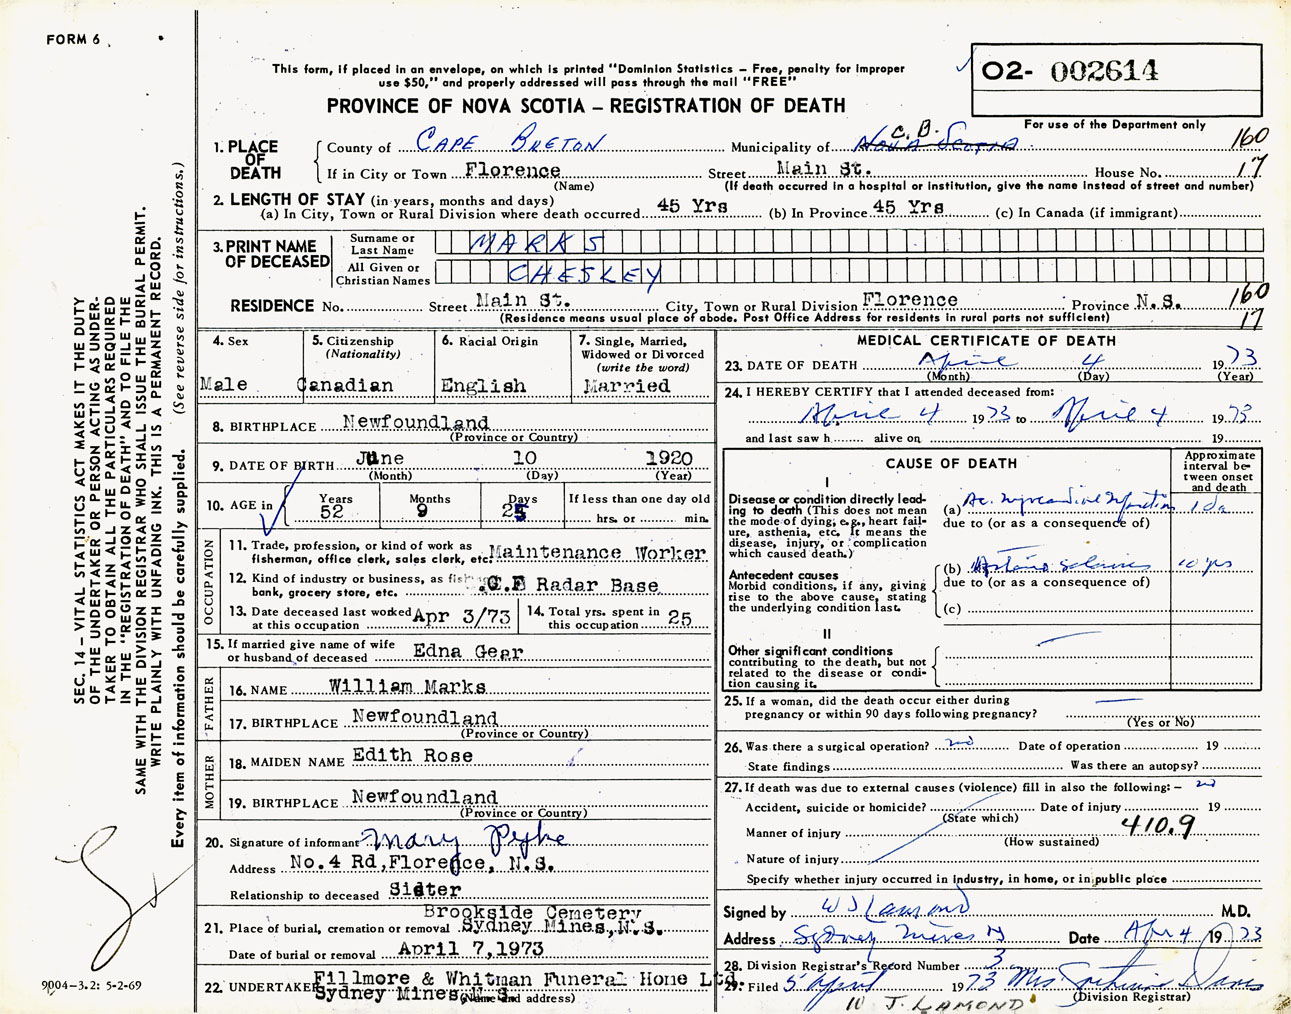 FORM 6
This form, if placed in an envelope, on which is printed "Dominion Statistics – Free, penalty for improper
use $50," and properly addressed will pass through the mail "FREE"
PROVINCE OF NOVA SCOTIA – REGISTRATION OF DEATH
O2- 002614
For use of the Department only
1. PLACE OF DEATH
County of CAPE BRETON Municipality of NOVA SCOTIA C. B. 160
If in City or Town Florence Street Main St. House No. 17
(Name) (If death occurred in a hospital or institution, give the name instead of street and number)
2. LENGTH OF STAY (in years, months and days)
(a) In City, Town or Rural Division where death occurred 45 Yrs (b) In Province 45 Yrs (c) In Canada (if immigrant)
3. PRINT NAME OF DECEASED
Surname or Last Name MARKS
All Given or Christian Names CHESLEY
RESIDENCE No. Street Main St. City, Town or Rural Division Florence Province N.S. 160
(Residence means usual place of abode. Post Office Address for residents in rural parts not sufficient) 17
4. Sex Male
5. Citizenship (Nationality) Canadian
6. Racial Origin English
7. Single, Married, Widowed or Divorced (write the word) Married
8. BIRTHPLACE Newfoundland
(Province or Country)
9. DATE OF BIRTH June 10 1920
(Month) (Day) (Year)
10. AGE in Years 52 Months 9 Days 25 If less than one day old
hrs. or min.
OCCUPATION
11. Trade, profession, or kind of work as
fisherman, office clerk, sales clerk, etc. Maintenance Worker
12. Kind of industry or business, as
bank, grocery store, etc. Radar Base
13. Date deceased last worked
at this occupation Apr 3/73
14. Total yrs. spent in
this occupation 25
15. If married give name of wife
or husband of deceased Edna Gear
FATHER
16. NAME William Marks
17. BIRTHPLACE Newfoundland
(Province or Country)
MOTHER
18. MAIDEN NAME Edith Rose
19. BIRTHPLACE Newfoundland
(Province or Country)
20. Signature of informant Mary Pyke
Address No.4 Rd,Florence, N.S.
Relationship to deceased Sister
Brookside Cemetery
21. Place of burial, cremation or removal Sydney Mines,N.S.
Date of burial or removal April 7,1973
22. UNDERTAKER Fillmore & Whitman Funeral Home Ltd.
Sydney Mines N S
(Name and address)
MEDICAL CERTIFICATE OF DEATH
23. DATE OF DEATH April 4 1973
(Month) (Day) (Year)
24. I HEREBY CERTIFY that I attended deceased from:
April 4 1973 to April 4 1973
and last saw h alive on 19
CAUSE OF DEATH
Approximate interval between onset and death
I
Disease or condition directly leading to death (This does not mean the mode of dying; e.g., heart failure, asthenia, etc. It means the disease, injury, or complication which caused death.)
(a) Ac. Myocardial Infarction 1 da
due to (or as a consequence of)
Antecedent causes
Morbid conditions, if any, giving rise to the above cause, stating the underlying condition last.
(b) 10 yrs
due to (or as a consequence of)
(c)
II
Other significant conditions
contributing to the death, but not related to the disease or condition causing it.
25. If a woman, did the death occur either during
pregnancy or within 90 days following pregnancy?
(Yes or No)
26. Was there a surgical operation? no Date of operation 19
State findings Was there an autopsy?
27. If death was due to external causes (violence) fill in also the following: – no
Accident, suicide or homicide? Date of injury 19
(State which)
Manner of injury 410.9
(How sustained)
Nature of injury
Specify whether injury occurred in industry, in home, or in public place
Signed by W J Lamond M.D.
Address Sydney Mines Date Apr 4 1973
28. Division Registrar's Record Number 3
29. Filed 5 April 1973 Mrs. Davis
(Division Registrar)
W J. LAMOND
SEC. 14 – VITAL STATISTICS ACT MAKES IT THE DUTY
OF THE UNDERTAKER OR PERSON ACTING AS UNDER-
TAKER TO OBTAIN ALL THE PARTICULARS REQUIRED
IN THE "REGISTRATION OF DEATH" AND TO FILE THE
SAME WITH THE DIVISION REGISTRAR WHO SHALL ISSUE THE BURIAL PERMIT.
WRITE PLAINLY WITH UNFADING INK. THIS IS A PERMANENT RECORD.
Every item of information should be carefully supplied. (See reverse side for instructions.)
9004-3.2: 5-2-69